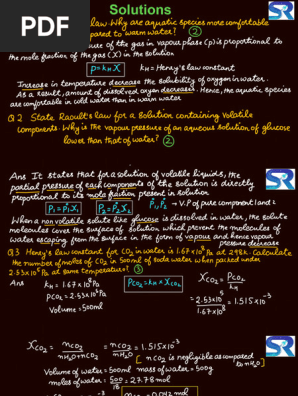 Solutions
PDF
law. Why are aquatic species more comfortable
compared to warm water? ②
ure of the gas in vapour phase (p) is proportional to
the mole fraction of the gas (X) in the solution
p = kH X kH = Henry's law constant
Increase in temperature decrease the solubility of oxygen in water.
As a result, amount of dissolved oxygen decreases. Hence, the aquatic species
are comfortable in cold water than in warm water
Q 2 State Raoult's law for a solution containing volatile
components. Why is the vapour pressure of an aqueous solution of glucose
lower than that of water? ②
SR
Ans It states that for a solution of volatile liquids, the
partial pressure of each components of the solution is directly
proportional to its mole fraction present in solution
P₁ = P₁°X₁ P₂ = P₂°X₂ P₁°, P₂° → V.P of pure component 1 and 2
When a nonvolatile solute like glucose is dissolved in water, the solute
molecules cover the surface of solution, which prevent the molecules of
water escaping from the surface in the form of vapours and hence vapour
pressure decrease
Q 3 Henry's law constant for CO₂ in water is 1.67×10⁸ Pa at 298K. Calculate
the number of moles of CO₂ in 500ml of soda water when packed under
2.53×10⁵ Pa at same temperature? ③
Ans kH = 1.67×10⁸ Pa PCO₂ = kH × XCO₂ XCO₂ = PCO₂/kH
PCO₂ = 2.53×10⁵ Pa = 2.53×10⁵/1.67×10⁸ = 1.515×10⁻³
Volume = 500ml
XCO₂ = nCO₂/nH₂O+nCO₂ = nCO₂/nH₂O = 1.515×10⁻³
[nCO₂ is negligible as compared
to nH₂O]
Volume of water = 500ml mass of water = 500g
moles of water: 500/18 = 27.78 mol
= 0.042 mol
SR